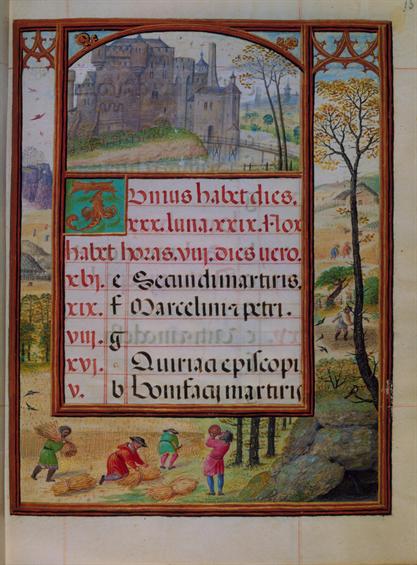 Iunius habet dies.
xxx. luna. xxix. Nox
habet horas. viij. dies uero.
xbi. e Secundi martiris.
xix. f Marcelini ⁊ petri.
viii. g
xvi. Quiriaci episcopi
v. b Bonifacij martiris